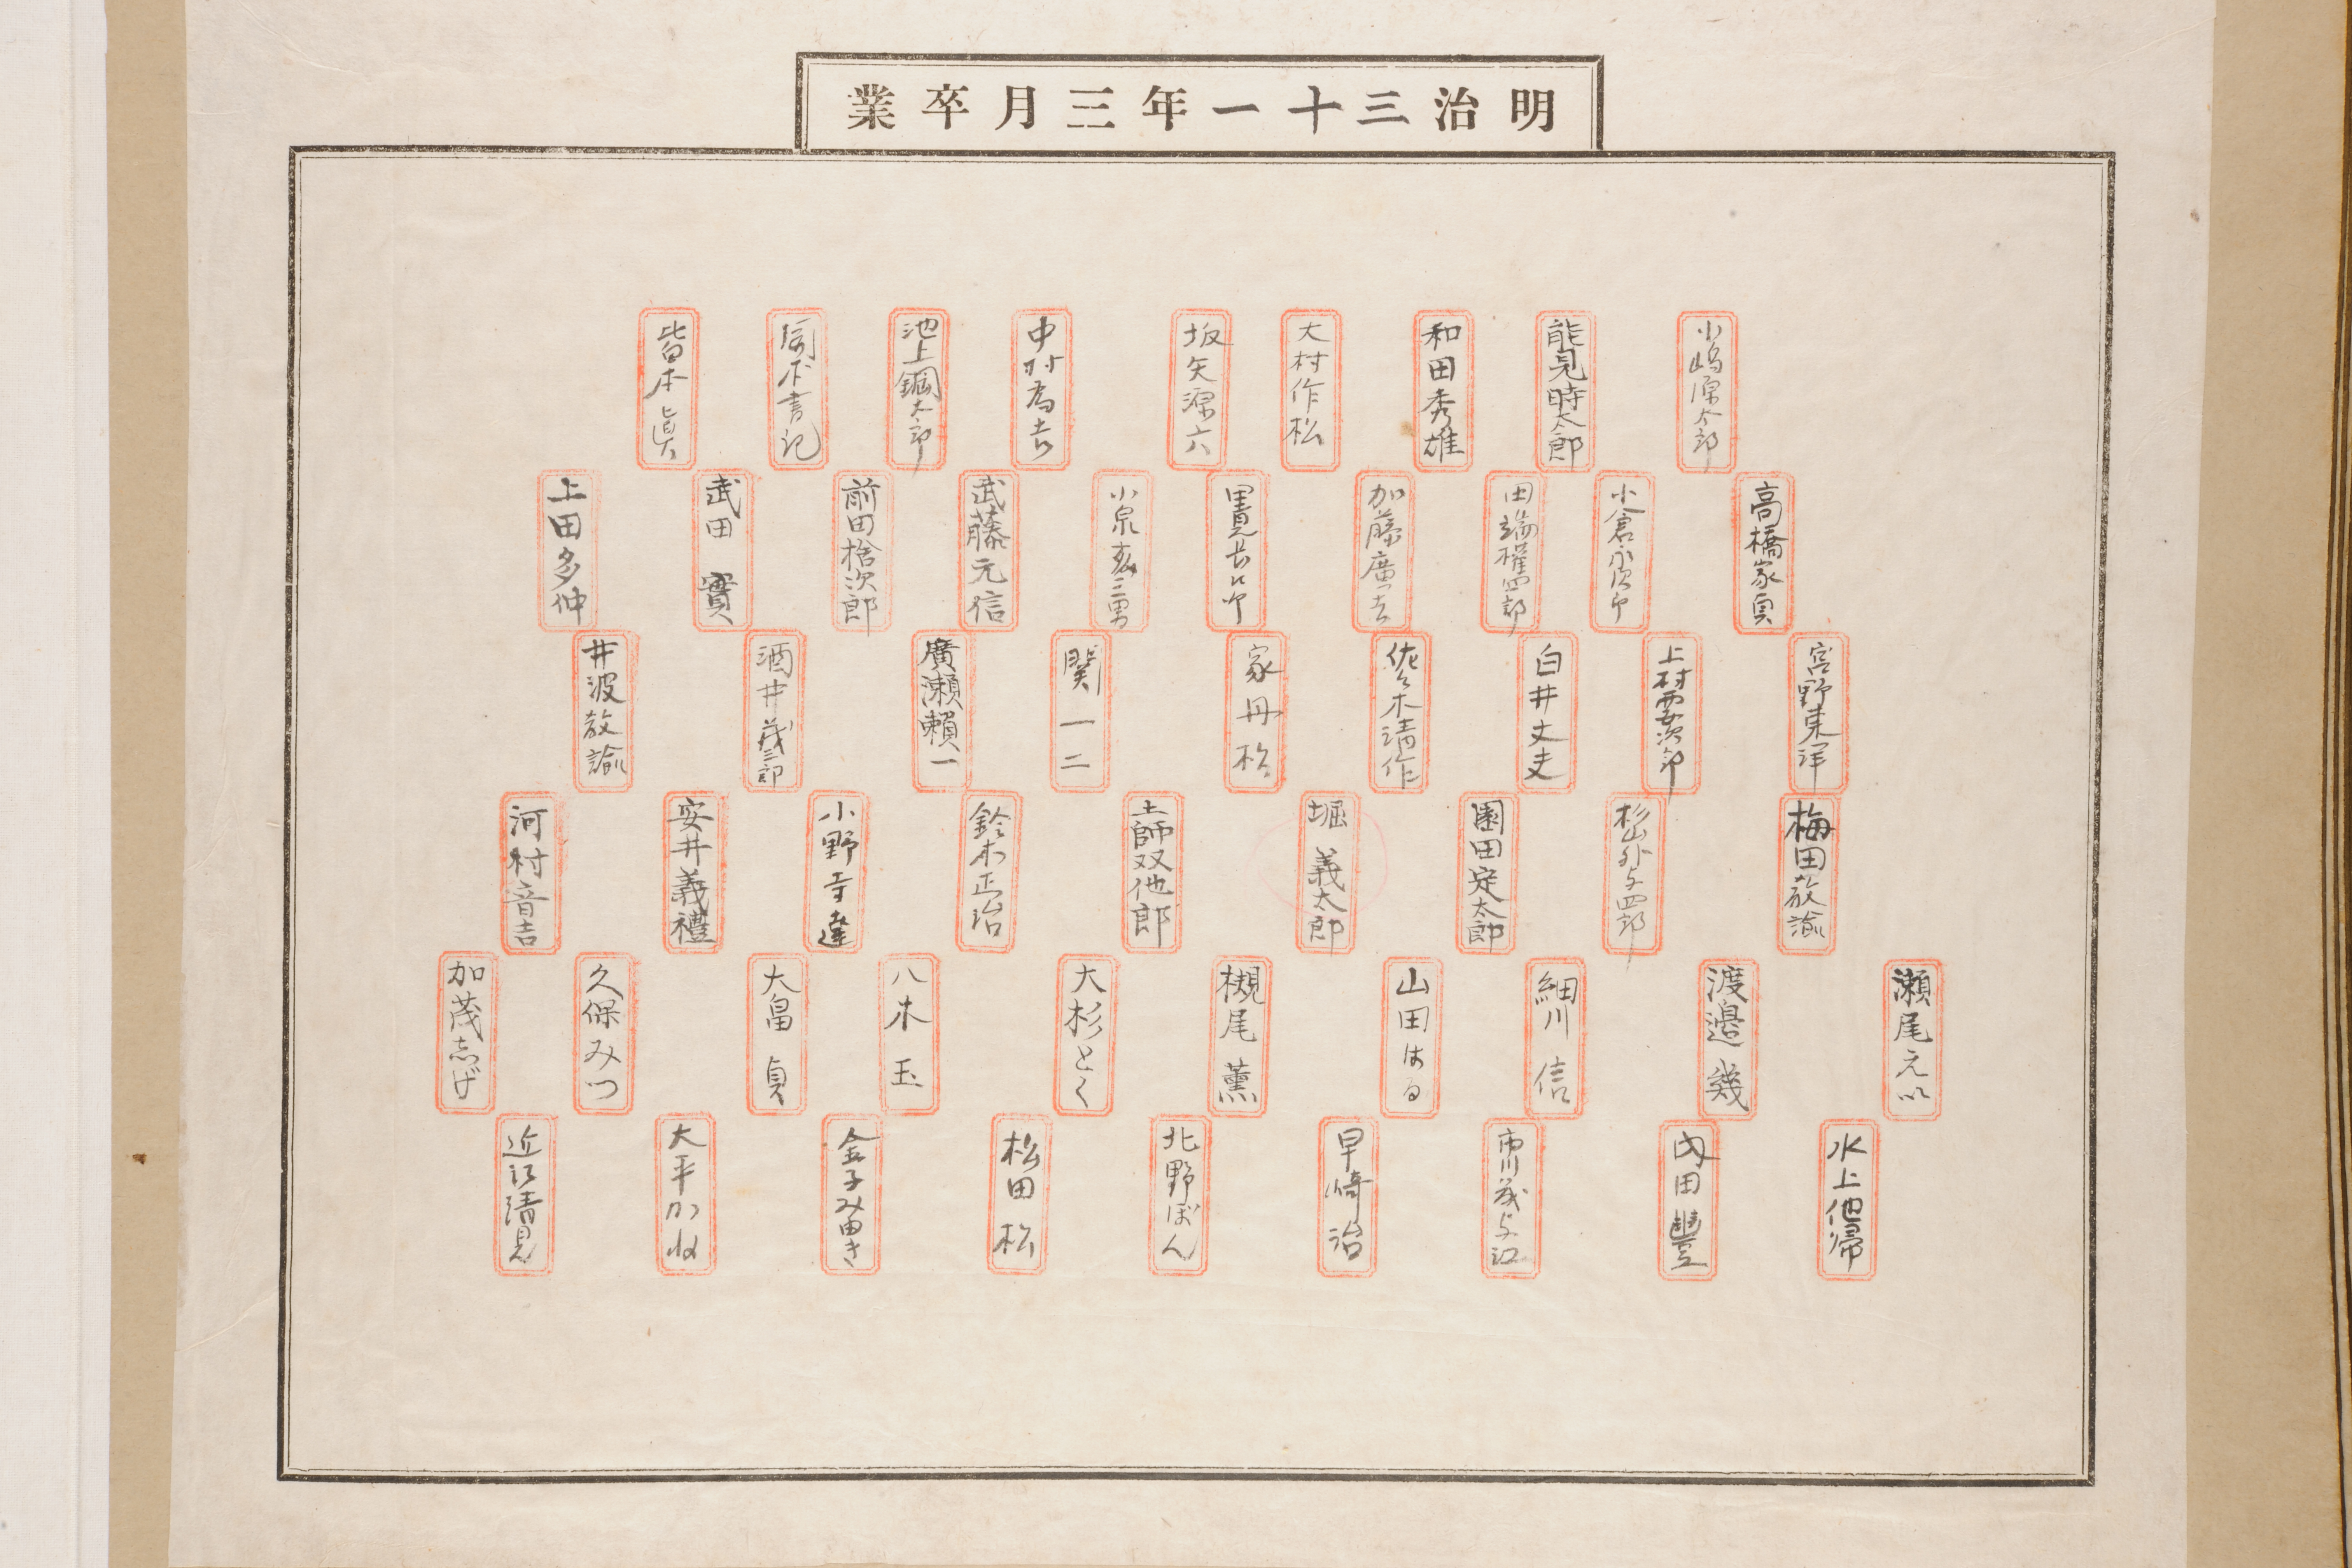 明治三十一年三月卒業
小嶋源太郎
能見時太郎
和田秀雄
大村作松
坂矢源六
中村為吉
池上鋼太郎
書記
皆木真
高橋家
小倉永次郎
田端権四郎
加藤廣吉
武藤元信
前田捨次郎
武田實
上田多仲
宮野東洋
上村要次郎
白井丈夫
佐々木清作
家舟松
関一二
廣瀬賴一
酒井茂三郎
井波教諭
梅田教諭
杉山外与四郎
園田定太郎
堀義太郎
土師双他郎
鈴木正治
小野寺達
安井義禮
河村音吉
瀬尾えい
渡邉幾
細川信
山田はる
槻尾薫
大杉とく
八木玉
大畠貞
久保みつ
加茂志げ
水上他帰
内田豊
市川茂与江
早崎治
北野ぼん
松田松
金子みゆき
大平かね
近江清見